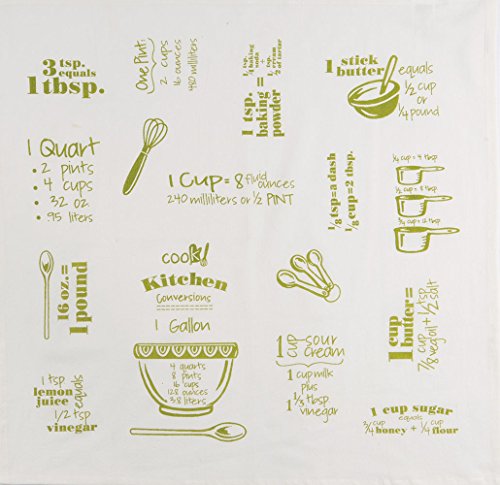 3 tsp.
equals
1 tbsp.
One Pint:
2 cups
16 ounces
480 milliliters
1 tsp.
baking
powder
=
1/4 tsp.
baking
soda
+
1/2 tsp.
cream
of tartar
1 stick
butter
equals
1/2 cup
or
1/4 pound
1 Quart
• 2 pints
• 4 cups
• 32 oz
• .95 liters
1 Cup = 8 fluid ounces
240 milliliters or 1/2 PINT
1/8 tsp = a dash
1/8 cup = 2 tbsp.
1/4 cup = 4 tbsp
1/2 cup = 8 tbsp
3/4 cup = 12 tbsp
16 oz. =
1 pound
cook!
Kitchen
Conversions
1 Gallon
4 quarts
8 pints
16 cups
128 ounces
3.8 liters
1 cup sour
cream
1 cup milk
plus
1 1/3 tbsp
vinegar
1 cup
butter =
7/8 veg oil + 1/2 tsp salt
1 tsp
lemon
juice
equals
1/2 tsp
vinegar
1 cup sugar
equals
3/4 cup honey + 1/4 cup flour